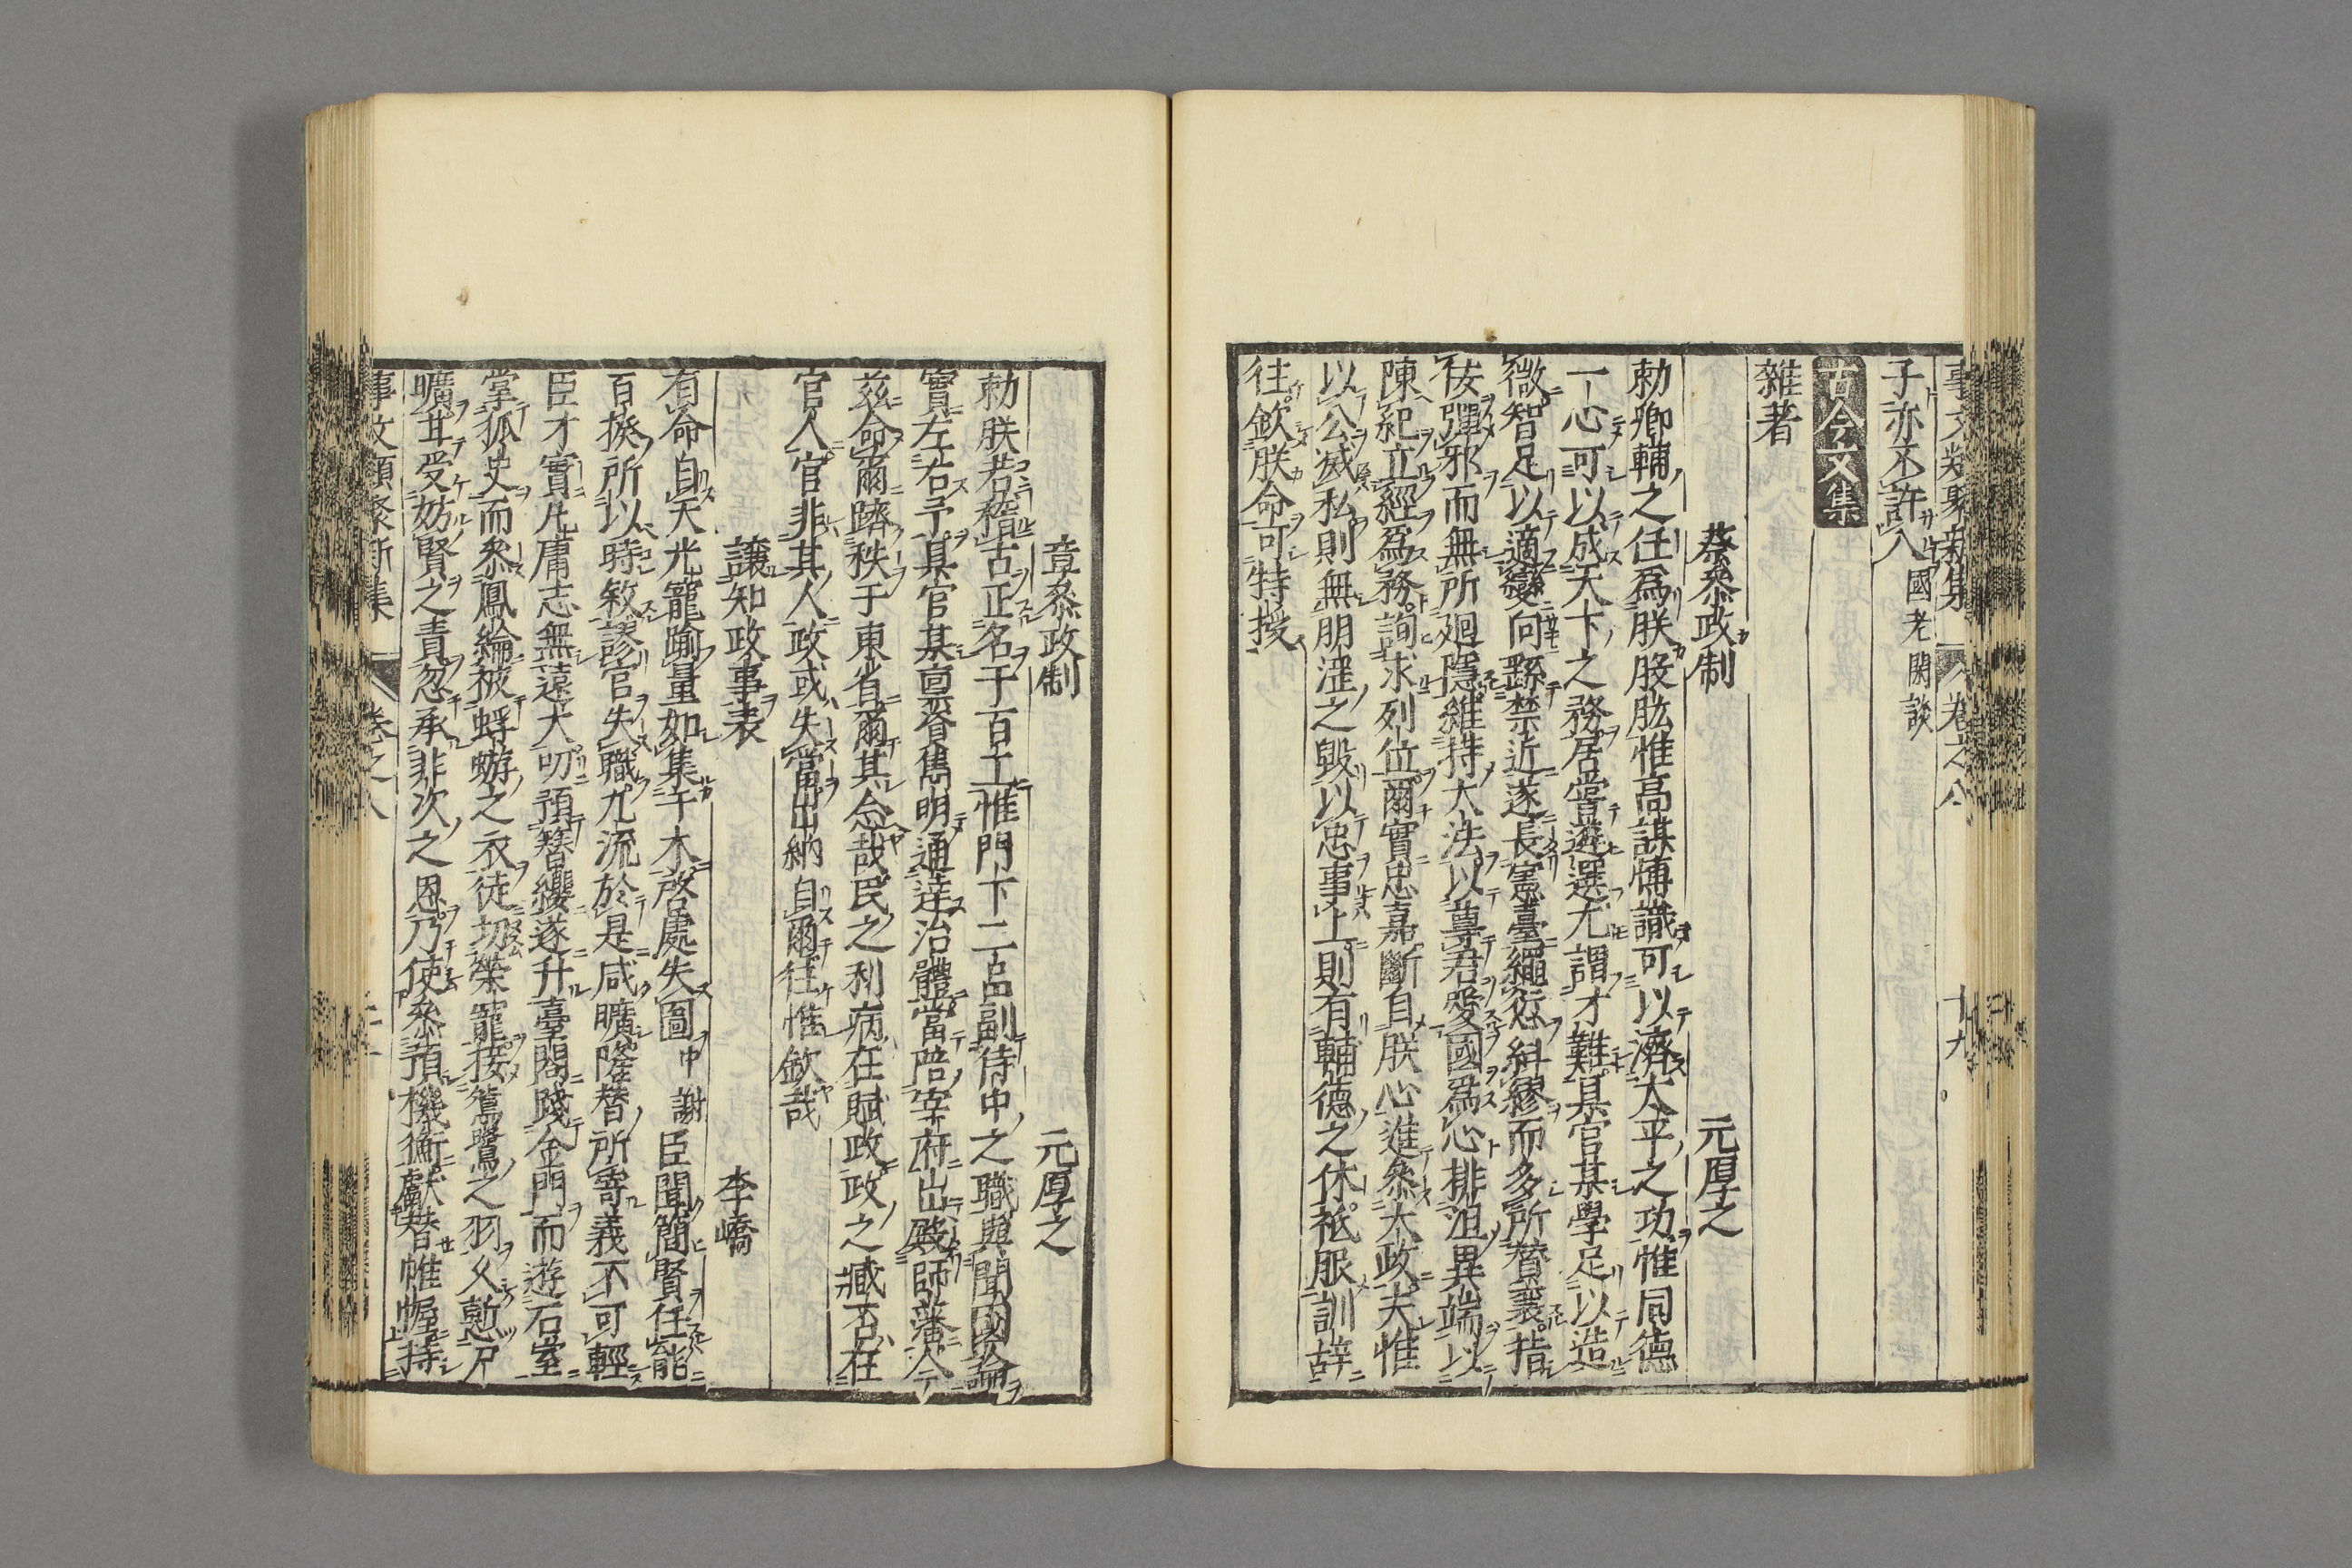 事文類聚新集 卷之八 十九
子亦不許入 國老閑談
古今文集
雜著
蔡叅政制 元厚之
勅卿輔之任爲朕股肱惟高謀愽識可以濟太平之功惟同德
一心可以成天下之務居嘗遊選尤謂才難某官某學足以造
微智足以適變向繇禁近遂長憲臺繩愆糾繆而多所賛襄指
佞彈邪而無所廻隱維持大法以尊君愛國爲心排沮異端以
陳紀立經爲務詢求列位爾實忠嘉斷自朕心進叅大政夫惟
以公滅私則無朋淫之毀以忠事上則有輔德之休祗服訓辞
往欽朕命可特授
章叅政制 元厚之
勅朕若稽古正名于百工惟門下二吕副待中之職與聞國論
實左右予某官某禀睿雋明通達治體嘗陪宰府出殿師藩今
茲命爾躋秩于東省爾其念哉民之利病在賦政政之臧否在
官人官非其人政或失當出納自爾往惟欽哉
讓知政事表 李嶠
有命自天光寵踰量如集于木啓處失圖中謝臣聞簡賢任能
百揆所以時敘謬官失職九流於是咸曠隆替所寄義不可輕
臣才實凡庸志無遠大叨預簪纓遂升臺閣踐金門而遊石室
掌狐史而叅鳳綸被蜉蝣之衣徒切榮寵接鴛鷺之羽乂慙尸
曠甘受妨賢之責忽承非次之恩乃使叅預機衡獻替帷幄持
事文類聚新集 卷之八